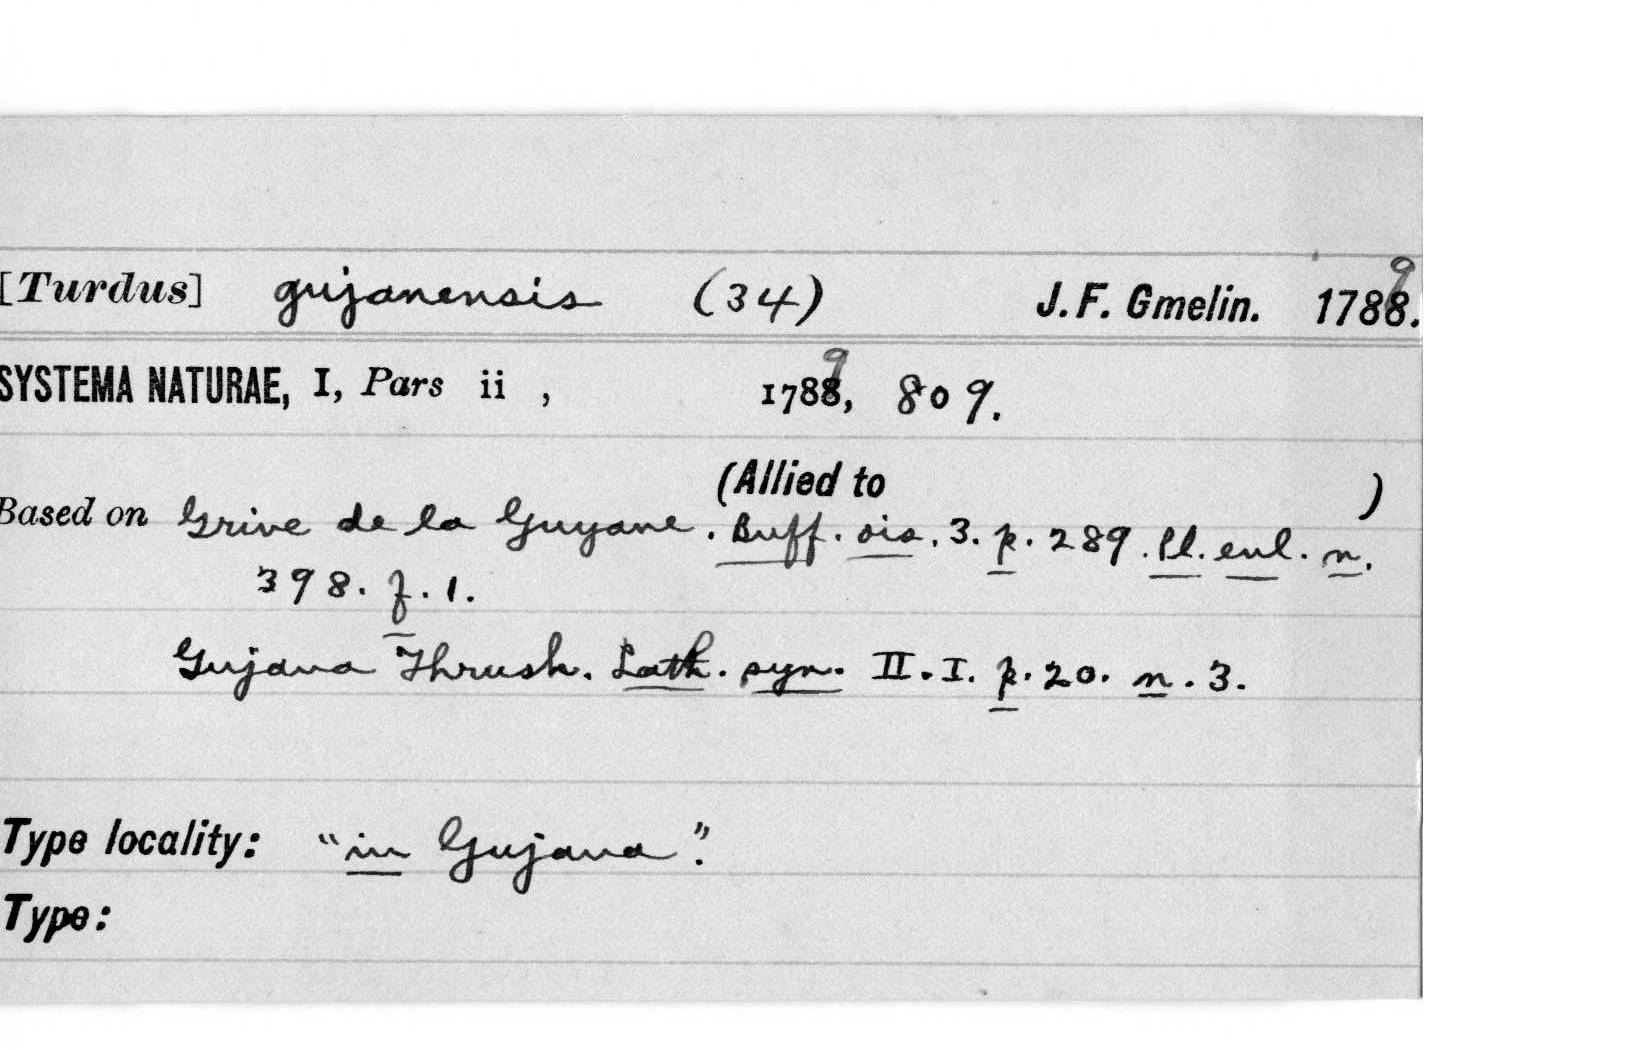 [Turdus] gujanensis (34) J. F. Gmelin. 1788. 9
SYSTEMA NATURAE, I, Pars ii , 1788, 9 809.
(Allied to )
Based on Grive de la Guyane. Buff. ois. 3. p. 289. Pl. enl. n.
398. f. 1.
Gujana Thrush. Lath. syn. II. I. p. 20. n. 3.
Type locality: "in Gujana".
Type: